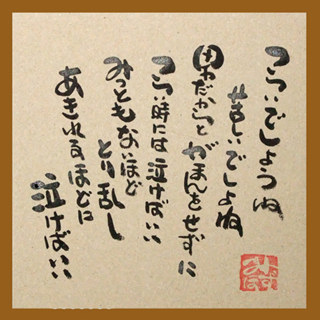 つらいでしょうね
苦しいでしょね
男だからとがまんをせずに
つらい時には泣けばいい
みっともないほど
とり乱し
あきれるほどに
泣けばいい